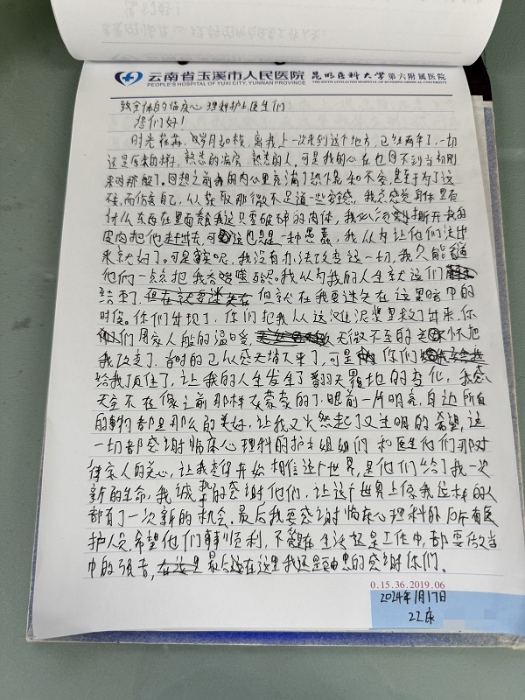 云南省玉溪市人民医院 昆明医科大学第六附属医院
PEOPLE'S HOSPITAL OF YUXI CITY, YUNNAN PROVINCE
致全体的临床心理科护士医生们
您们好!
时光荏苒,岁月如梭,离我上一次来到这个地方,已经两年了,一切
还是原来的样,熟悉的病房,熟悉的人,可是我的心在也回不到当初刚
来时那般了。回想之前我的内心里充满了恐惧和不安,甚至为了这
样,而伤害自己,从获取那微不足道一些安全感,我总感觉身体里有
什么东西在里面
皮肉把他 出去,可 这也是一种愚蠢,我以为让他们流出
来就好了。可是 呢,我没有办法改变这一切,我只能
他们一点点把我吞噬 。我以为我的人生就这们
结束了, 但就在我要迷失在这黑暗中的
时侯。你们出现了,你们把我从这 泥 里救了出来,你
们用家人般的温暖, 无微不至的关怀把
我改变了。当时的已从感支撑不来了,可是 你们
给我顶住了,让我的人生发生了翻天覆地的变化,我感
天空不在像之前那样灰蒙蒙的了,眼前一片明亮,身边所有
的事物都是那么的美好,让我又火然起了又生明的希望,这
一切都感谢临床心理科的护士姐姐们和医生他们那对
待家人的关心,让我变得开始相信这个世界,是他们给了我一次
新的生命,我诚挚的感谢他们,让这个世界上像我这样的人
都有了一次新的机会。最后我要感谢临床心理科的所有医
护人员,希望他们事事顺利,不管在生活还是工作中,都要做当
中的强者, 最后还在这里我还是 的感谢你们。
0.15.36.2019.06
2024年1月17日
22床